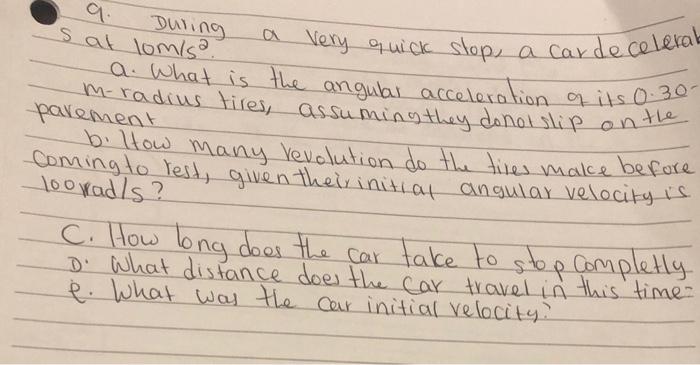 9. During a very quick stop, a car decelerat
s at 10m/s².
a. What is the angular acceleration of its 0.30-
m-radius tires, assuming they donot slip on the
pavement
b. How many revolution do the tires make before
coming to rest, given their initial angular velocity is
100 rad/s?
C. How long does the car take to stop completly
D. What distance does the car travel in this time-
e. What was the car initial velocity?